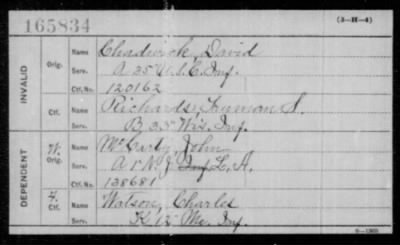 165834
(3-H-4)
INVALID
Orig.
Name Chadwick, David
Serv. A 25 U.S.C. Inf.
Ctf. No. 120162
Ctf.
Name Richards, S.
Serv. B 35 Wis. Inf.
DEPENDENT
W. Orig.
Name McCarty, John
Serv. A 1 N.J. Inf L.A.
Ctf. No. 138681
F. Ctf.
Name Watson, Charles
Serv. K 12 Me. Inf.